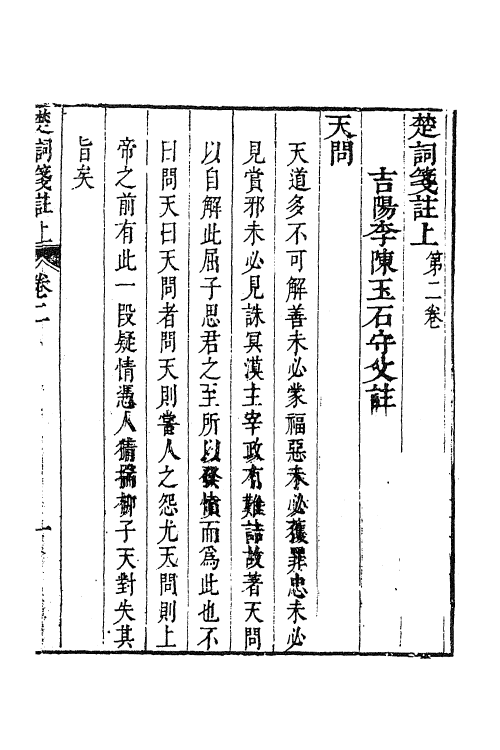 楚詞箋註上 第二卷
吉陽李陳玉石守父註
天問
天道多不可解善未必蒙福惡未必獲罪忠未必
見賞邪未必見誅冥漠主宰政有難詰故著天問
以自解此屈子思君之至所以發憤而爲此也不
曰問天曰天問者問天則常人之怨尤天問則上
帝之前有此一段疑情憑人猜揣柳子天對失其
旨矣
楚詞箋註上 卷二 一